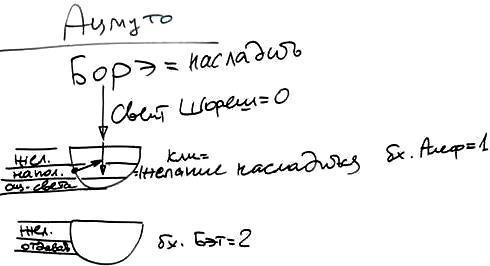 Ацмуто
Борэ = насладить
Свет Шореш=0
жел.
напол.
ощ. света
кли=
желание насладиться
бх. Алеф=1
жел.
отдавать
бх. Бэт=2